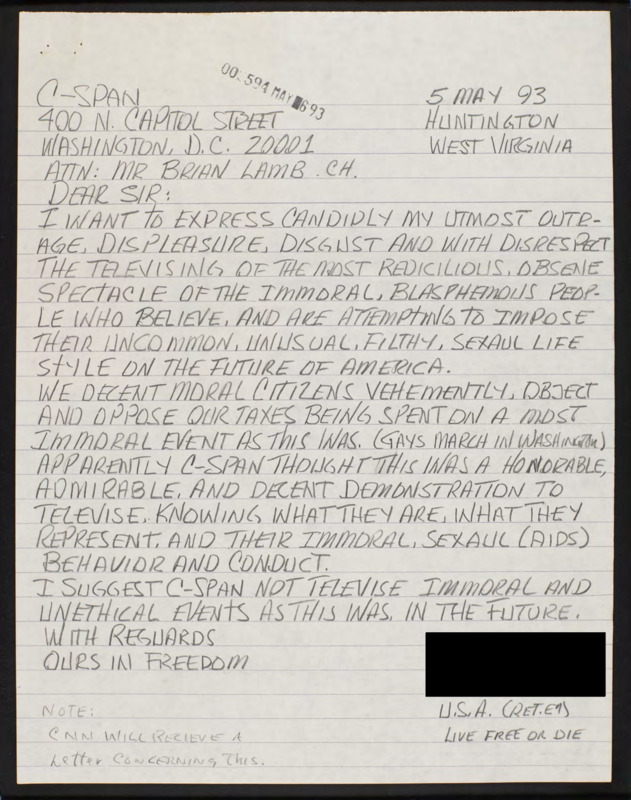 00.594 MAY 693
C-SPAN
5 MAY 93
400 N. CAPITOL STREET
HUNTINGTON
WASHINGTON, D.C. 20001
WEST VIRGINIA
ATTN: MR BRIAN LAMB. CH.
DEAR SIR:
I WANT TO EXPRESS CANDIDLY MY UTMOST OUTR-
AGE, DISPLEASURE, DISGUST AND WITH DISRESPECT
THE TELEVISING OF THE MOST REDICILIOUS, OBSENE
SPECTACLE OF THE IMMORAL, BLASPHEMOUS PEOP-
LE WHO BELIEVE, AND ARE ATTEMPTING TO IMPOSE
THEIR UNCOMMON, UNUSUAL, FILTHY, SEXAUL LIFE
STYLE ON THE FUTURE OF AMERICA.
WE DECENT MORAL CITIZENS VEHEMENTLY, OBJECT
AND OPPOSE OUR TAXES BEING SPENT ON A MOST
IMMORAL EVENT AS THIS WAS. (GAYS MARCH IN WASHINGTON)
APPARENTLY C-SPAN THOUGHT THIS WAS A HONORABLE,
ADMIRABLE, AND DECENT DEMONSTRATION TO
TELEVISE. KNOWING WHAT THEY ARE, WHAT THEY
REPRESENT, AND THEIR IMMORAL, SEXAUL (AIDS)
BEHAVIOR AND CONDUCT.
I SUGGEST C-SPAN NOT TELEVISE IMMORAL AND
UNETHICAL EVENTS AS THIS WAS, IN THE FUTURE.
WITH REGUARDS
OURS IN FREEDOM
U.S.A. (RET. E7)
LIVE FREE OR DIE
NOTE:
CNN WILL RECIEVE A
LETTER CONCERNING THIS.